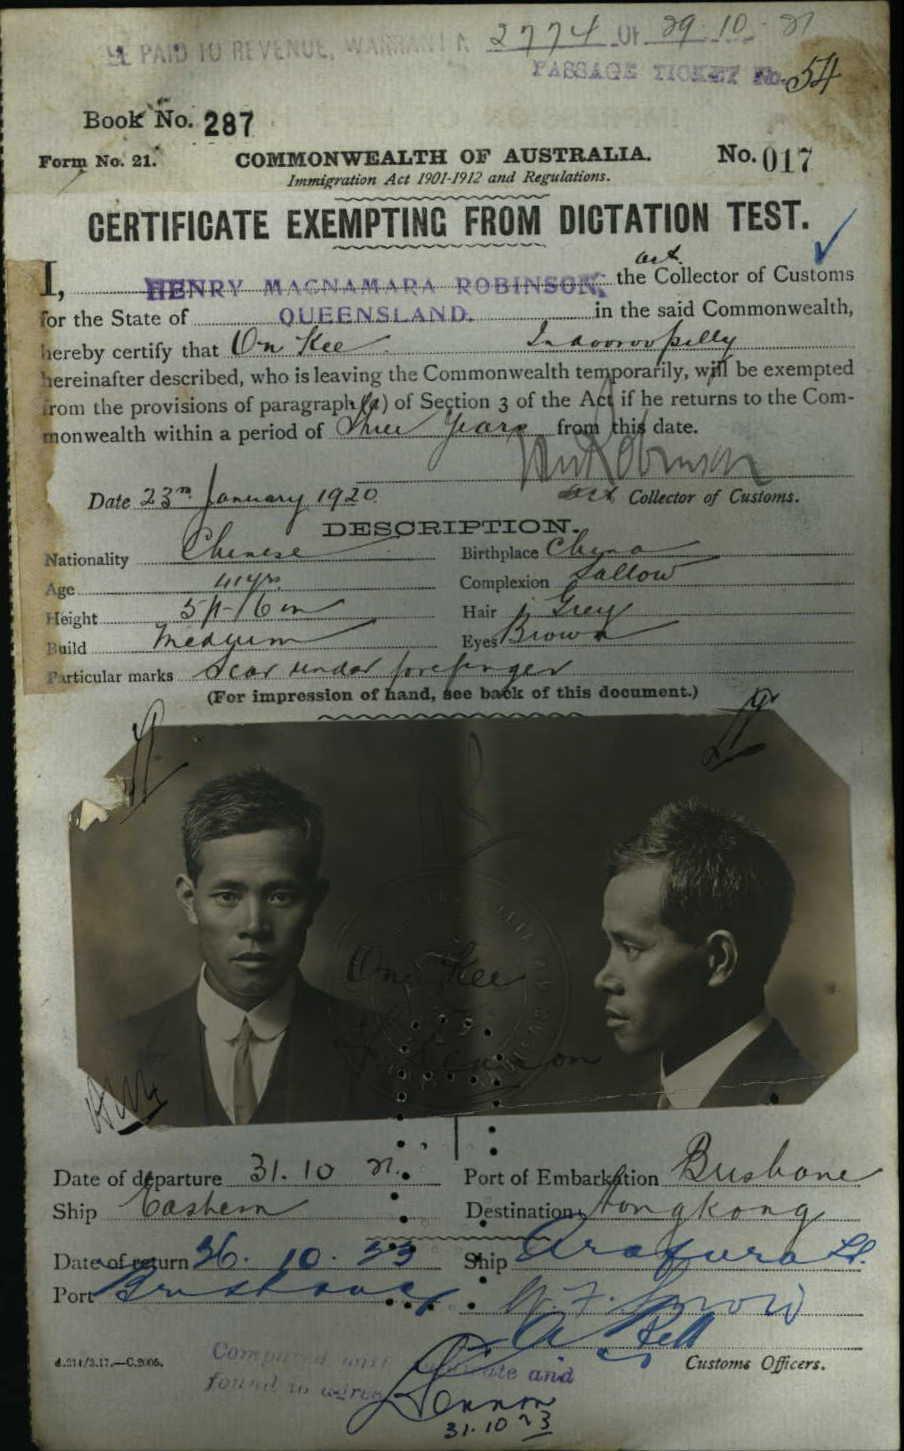 PAID TO REVENUE, WARRANT A 2774 OF 29.10.21
PASSAGE TICKET No. 54
Book No. 287
Form No. 21. COMMONWEALTH OF AUSTRALIA. No. 017
Immigration Act 1901-1912 and Regulations.
CERTIFICATE EXEMPTING FROM DICTATION TEST.
act.
I, HENRY MACNAMARA ROBINSON, the Collector of Customs
for the State of QUEENSLAND. in the said Commonwealth,
hereby certify that On Kee Indooroopilly
hereinafter described, who is leaving the Commonwealth temporarily, will be exempted
from the provisions of paragraph (a) of Section 3 of the Act if he returns to the Com-
monwealth within a period of Three Years from this date.
Robinson
Date 23rd January 1920 act Collector of Customs.
DESCRIPTION.
Nationality Chinese Birthplace China
Age 41 yrs. Complexion Sallow
Height 5 ft 6 in Hair Grey
Build Medium Eyes Brown
Particular marks Scar under forefinger
(For impression of hand, see back of this document.)
On Kee
Date of departure 31.10 21. Port of Embarkation Brisbane
Ship Eastern Destination Hongkong
Date of return 26.10.23 Ship Arafura
Port Brisbane
Customs Officers.
d.214/3.17.—C.2005.
Compared with duplicate and
found to agree
Lennon
31.10.23